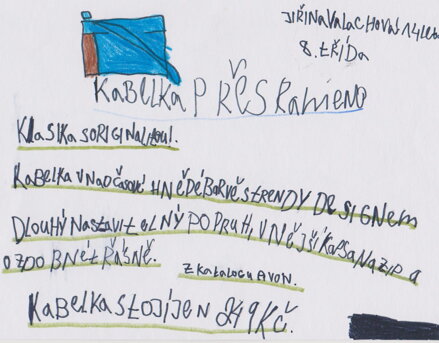 JIŘINA VALACHOVÁ 14 let
8. TŘÍDA
KABELKA PŘES RAMENO
KLASIKA S ORIGINALITOU!
KABELKA V NADČASOVÉ HNĚDÉ BARVĚ S TRENDY DESIGNEM
DLOUHÝ NASTAVITELNÝ POPRUH, VNĚJŠÍ KAPSA NA ZIP A
OZDOBNÉ TŘÁSNĚ.
Z KATALOGU AVON.
KABELKA STOJÍ JEN 249 KČ.